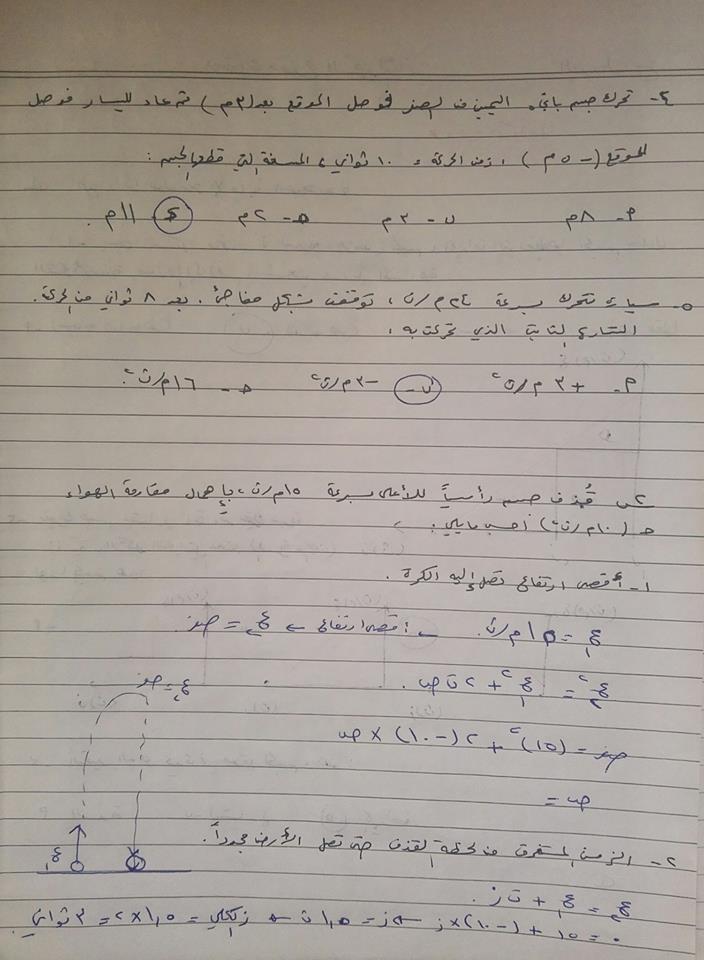 ٤- تحرك جسم باتجاه اليمين من الصفر فوصل الموقع بعد (٣م) ثم عاد لليسار فوصل
للموقع (-٥م) ، زمن الحركة ١٠ ثواني ، المسافة التي قطعها الجسم :
٨ - ٨م ب- ٣م ح- ٢م د ١١م.
٥- سيارة تتحرك بسرعة ٢٤م/ث ، توقفت بشكل مفاجئ . بعد ٨ ثواني من الحركة .
التسارع الثابت الذي تحركت به :
٢- +٣ م/ث² ب- -٣م/ث² ح- ١٦م/ث².
س٢ قُذف جسم رأسياً للأعلى بسرعة ١٥م/ث ، بإهمال مقاومة الهواء
(١٠م/ث²) أحسب مايلي :
١- أقصى ارتفاع تصل إليه الكرة .
ع١ = ١٥م/ث. ← أقصى ارتفاع ← ع٢ = صفر.
ع٢² = ع١² + ٢ ت ص .
ع٢ = صفر
صفر = (١٥)² + ٢ (-١٠) × ص
ص =
ع١
٢- الزمن المستغرق من لحظة القذف حتى تصل الأرض مجدداً.
ع٢ = ع١ + ت ز.
٠ = ١٥ + (-١٠)×ز ← ز = ١,٥ ث ← ز الكلي = ١,٥ × ٢ = ٣ ثواني